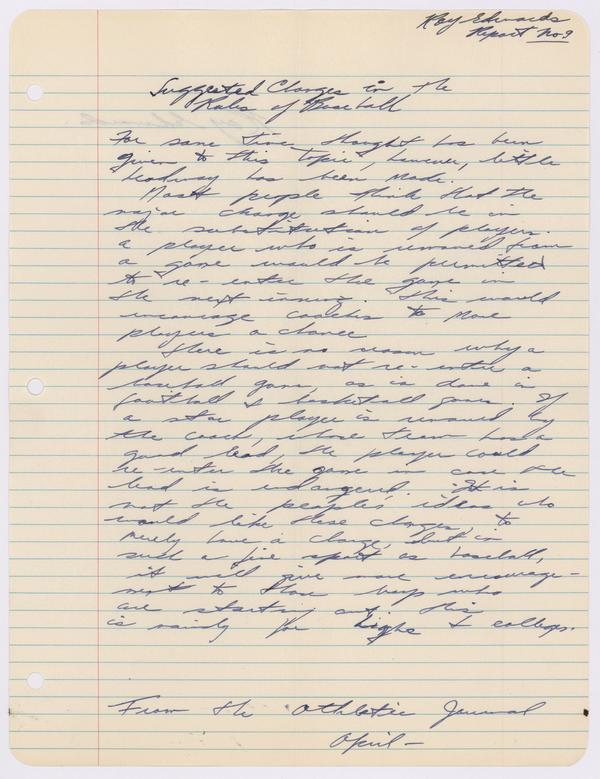 Ray Edwards
Report No. 9
Suggested Changes in the
Rules of Baseball
For some time thought has been
given to this topic, however, little
leadway has been made.
Most people think that the
major change should be in
the substitution of players.
a player who is removed from
a game would be permitted
to re-enter the game in
the next inning. This would
encourage coaches to
players a chance
There is no reason why a
player should not re-enter a
baseball game, as is done in
football & basketball games. If
a star player is removed by
the coach, whose team has a
good lead, the player could
re-enter the game in case the
lead is endangered. It is
not the peoples ideas who
would like these changes, to
merely have a change, but in
such a fine sport as baseball,
it will give more encourage-
ment to those boys who
are starting out. This
is mainly for highs & colleges.
From the Athletic Journal
April -